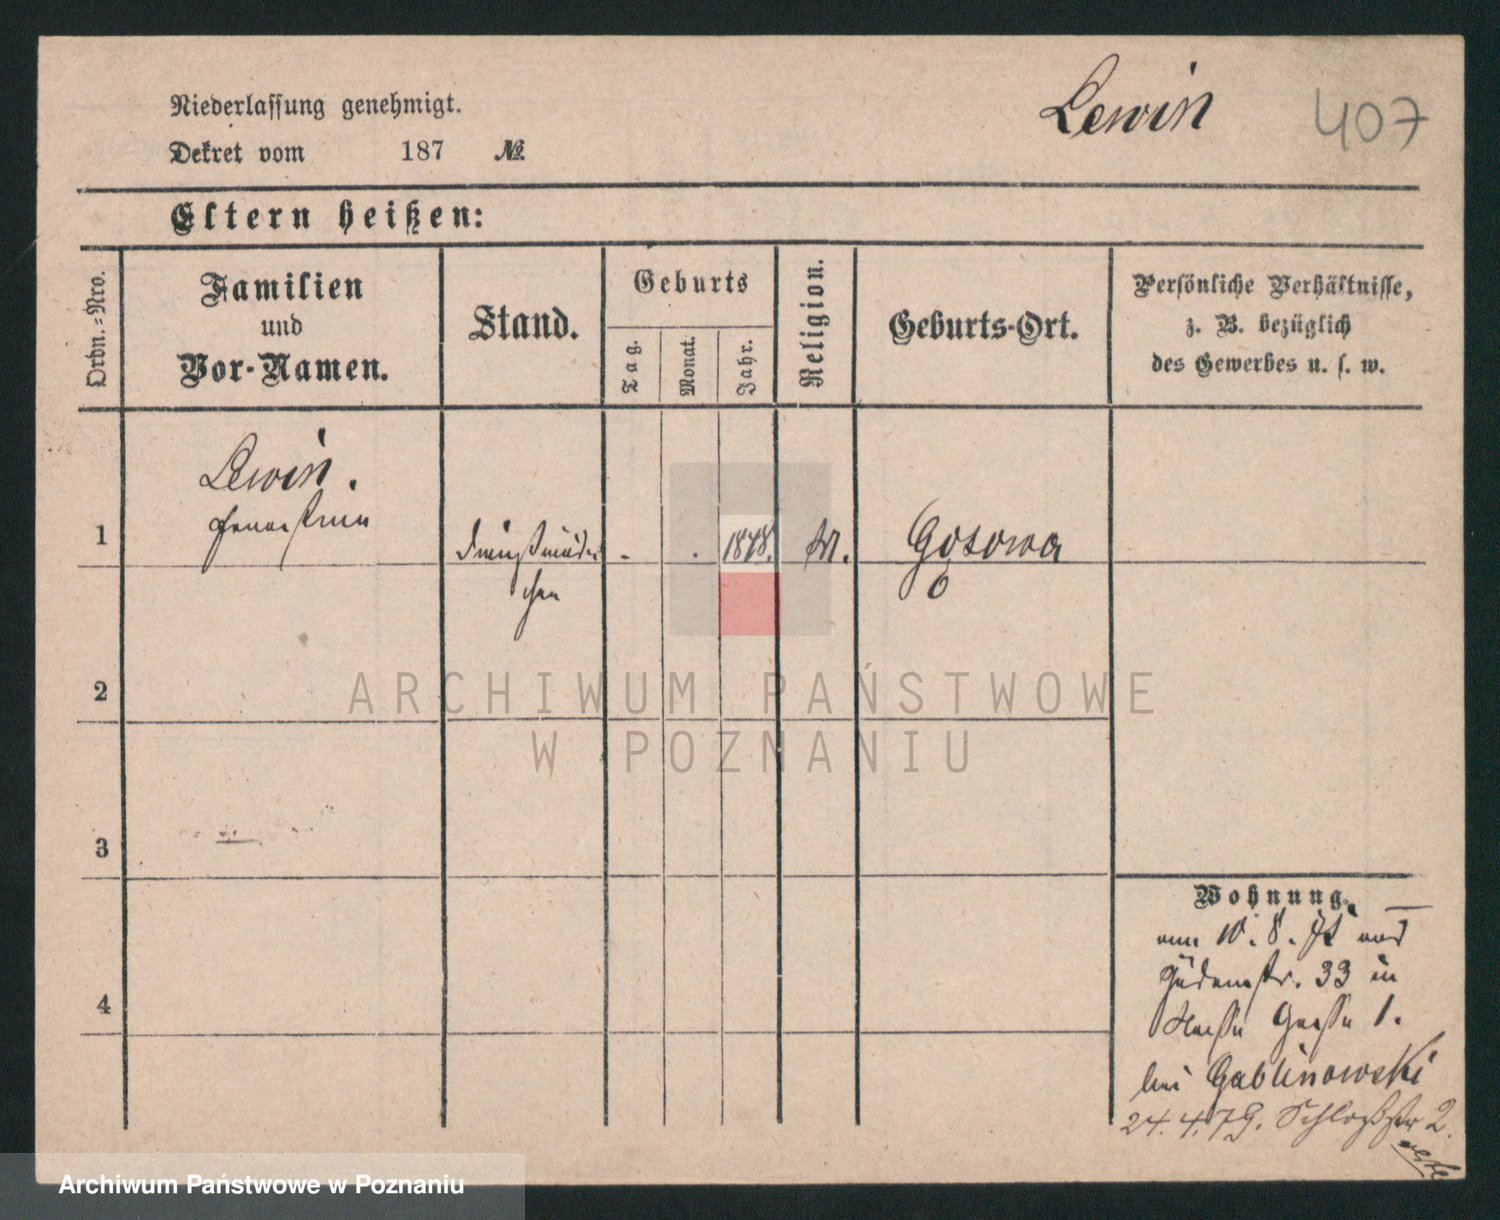 Lewin 407
Niederlassung genehmigt.
Dekret vom 187 №
Eltern heißen:
Ordn.=Nro.
Familien
und
Vor-Namen.
Stand.
Geburts
Tag.
Monat.
Jahr.
Religion.
Geburts-Ort.
Persönliche Verhältnisse,
z. B. bezüglich
des Gewerbes u. s. w.
Lewin.
1 Ernestine Dienstmäd- 1848. M. Gosowa
chen
2
3
4
Wohnung.
33 in
Gasse 1.
bei Gablinowski
24.4.79. Schloßstr 2.
ARCHIWUM PAŃSTWOWE
W POZNANIU
Archiwum Państwowe w Poznaniu